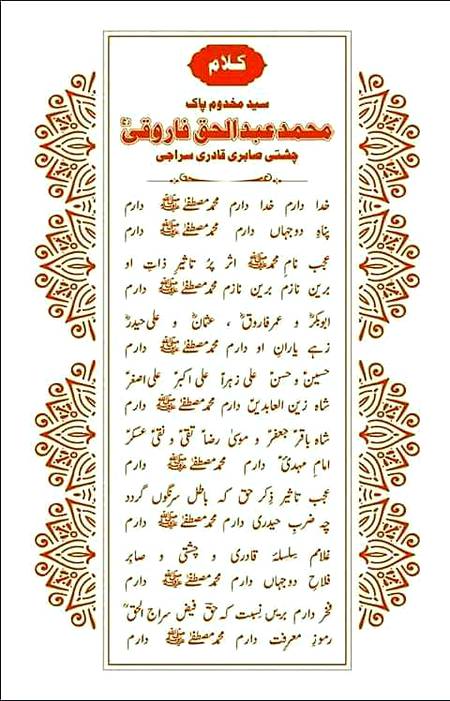 کلام
سید مخدوم پاک
محمد عبد الحق فاروقیؒ
چشتی صابری قادری سراجی
خدا دارم خدا دارم محمد مصطفےٰ ﷺ دارم
پناہِ دوجہاں دارم محمد مصطفےٰ ﷺ دارم
عجب نامِ محمد ﷺ اثر پُر تاثیرِ ذاتِ او
بریں نازم بریں نازم محمد مصطفےٰ ﷺ دارم
ابوبکرؓ و عمر فاروقؓ ، عثمانؓ و علی حیدرؓ
زہے یارانِ او دارم محمد مصطفےٰ ﷺ دارم
حسینؑ و حسنؑ علیؑ زہراؑ علی اکبرؑ علی اصغرؑ
شاہ زین العابدیںؑ دارم محمد مصطفےٰ ﷺ دارم
شاہ باقرؑ جعفرؑ و موسیٰؑ رضاؑ تقیؑ و نقیؑ عسکرؑ
امام مہدیؑ دارم محمد مصطفےٰ ﷺ دارم
عجب تاثیر ذِکر حق کہ باطل سرنگوں گردد
چہ ضربِ حیدری دارم محمد مصطفےٰ ﷺ دارم
غلامم سِلسلۂ قادری و چشتی و صابر
فلاحِ دوجہاں دارم محمد مصطفےٰ ﷺ دارم
فخر دارم بریں نِسبت کہ حق فیض سراج الحقؒ
رموزِ معرفت دارم محمد مصطفےٰ ﷺ دارم